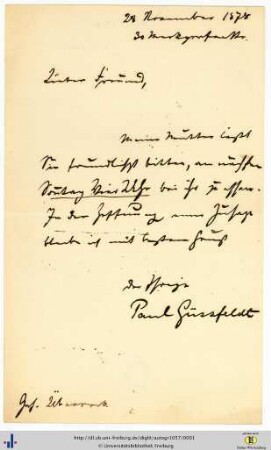 28 November 1878
30 Markgrafenstr.
Lieber Freund,
Meine Mutter läßt
Sie freundlichst bitten, am nächsten
Sontag Vier Uhr bei ihr zu essen.
In der Hoffnung einer Zusage
bleibe ich mit bestem Gruß
der Ihrige
Paul Güssfeldt
http://dl.ub.uni-freiburg.de/diglit/autog-1057/0001
Universitätsbibliothek Freiburg